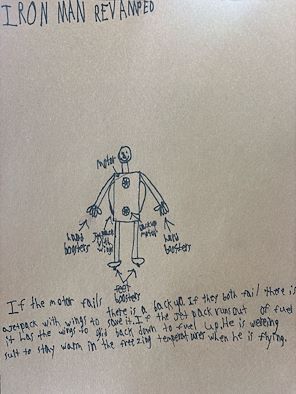 IRON MAN REVAMPED
motor
hand boosters
jetpack with wings
backup motor
hand boosters
feet boosters
If the motor fails there is a back up. If they both fail there is
a jetpack with wings to save it. If the jet pack runs out of fuel
it has the wings to glid back down to fuel up. He is wereing
suit to stay warm in the freezing temperaturer when he is flying.